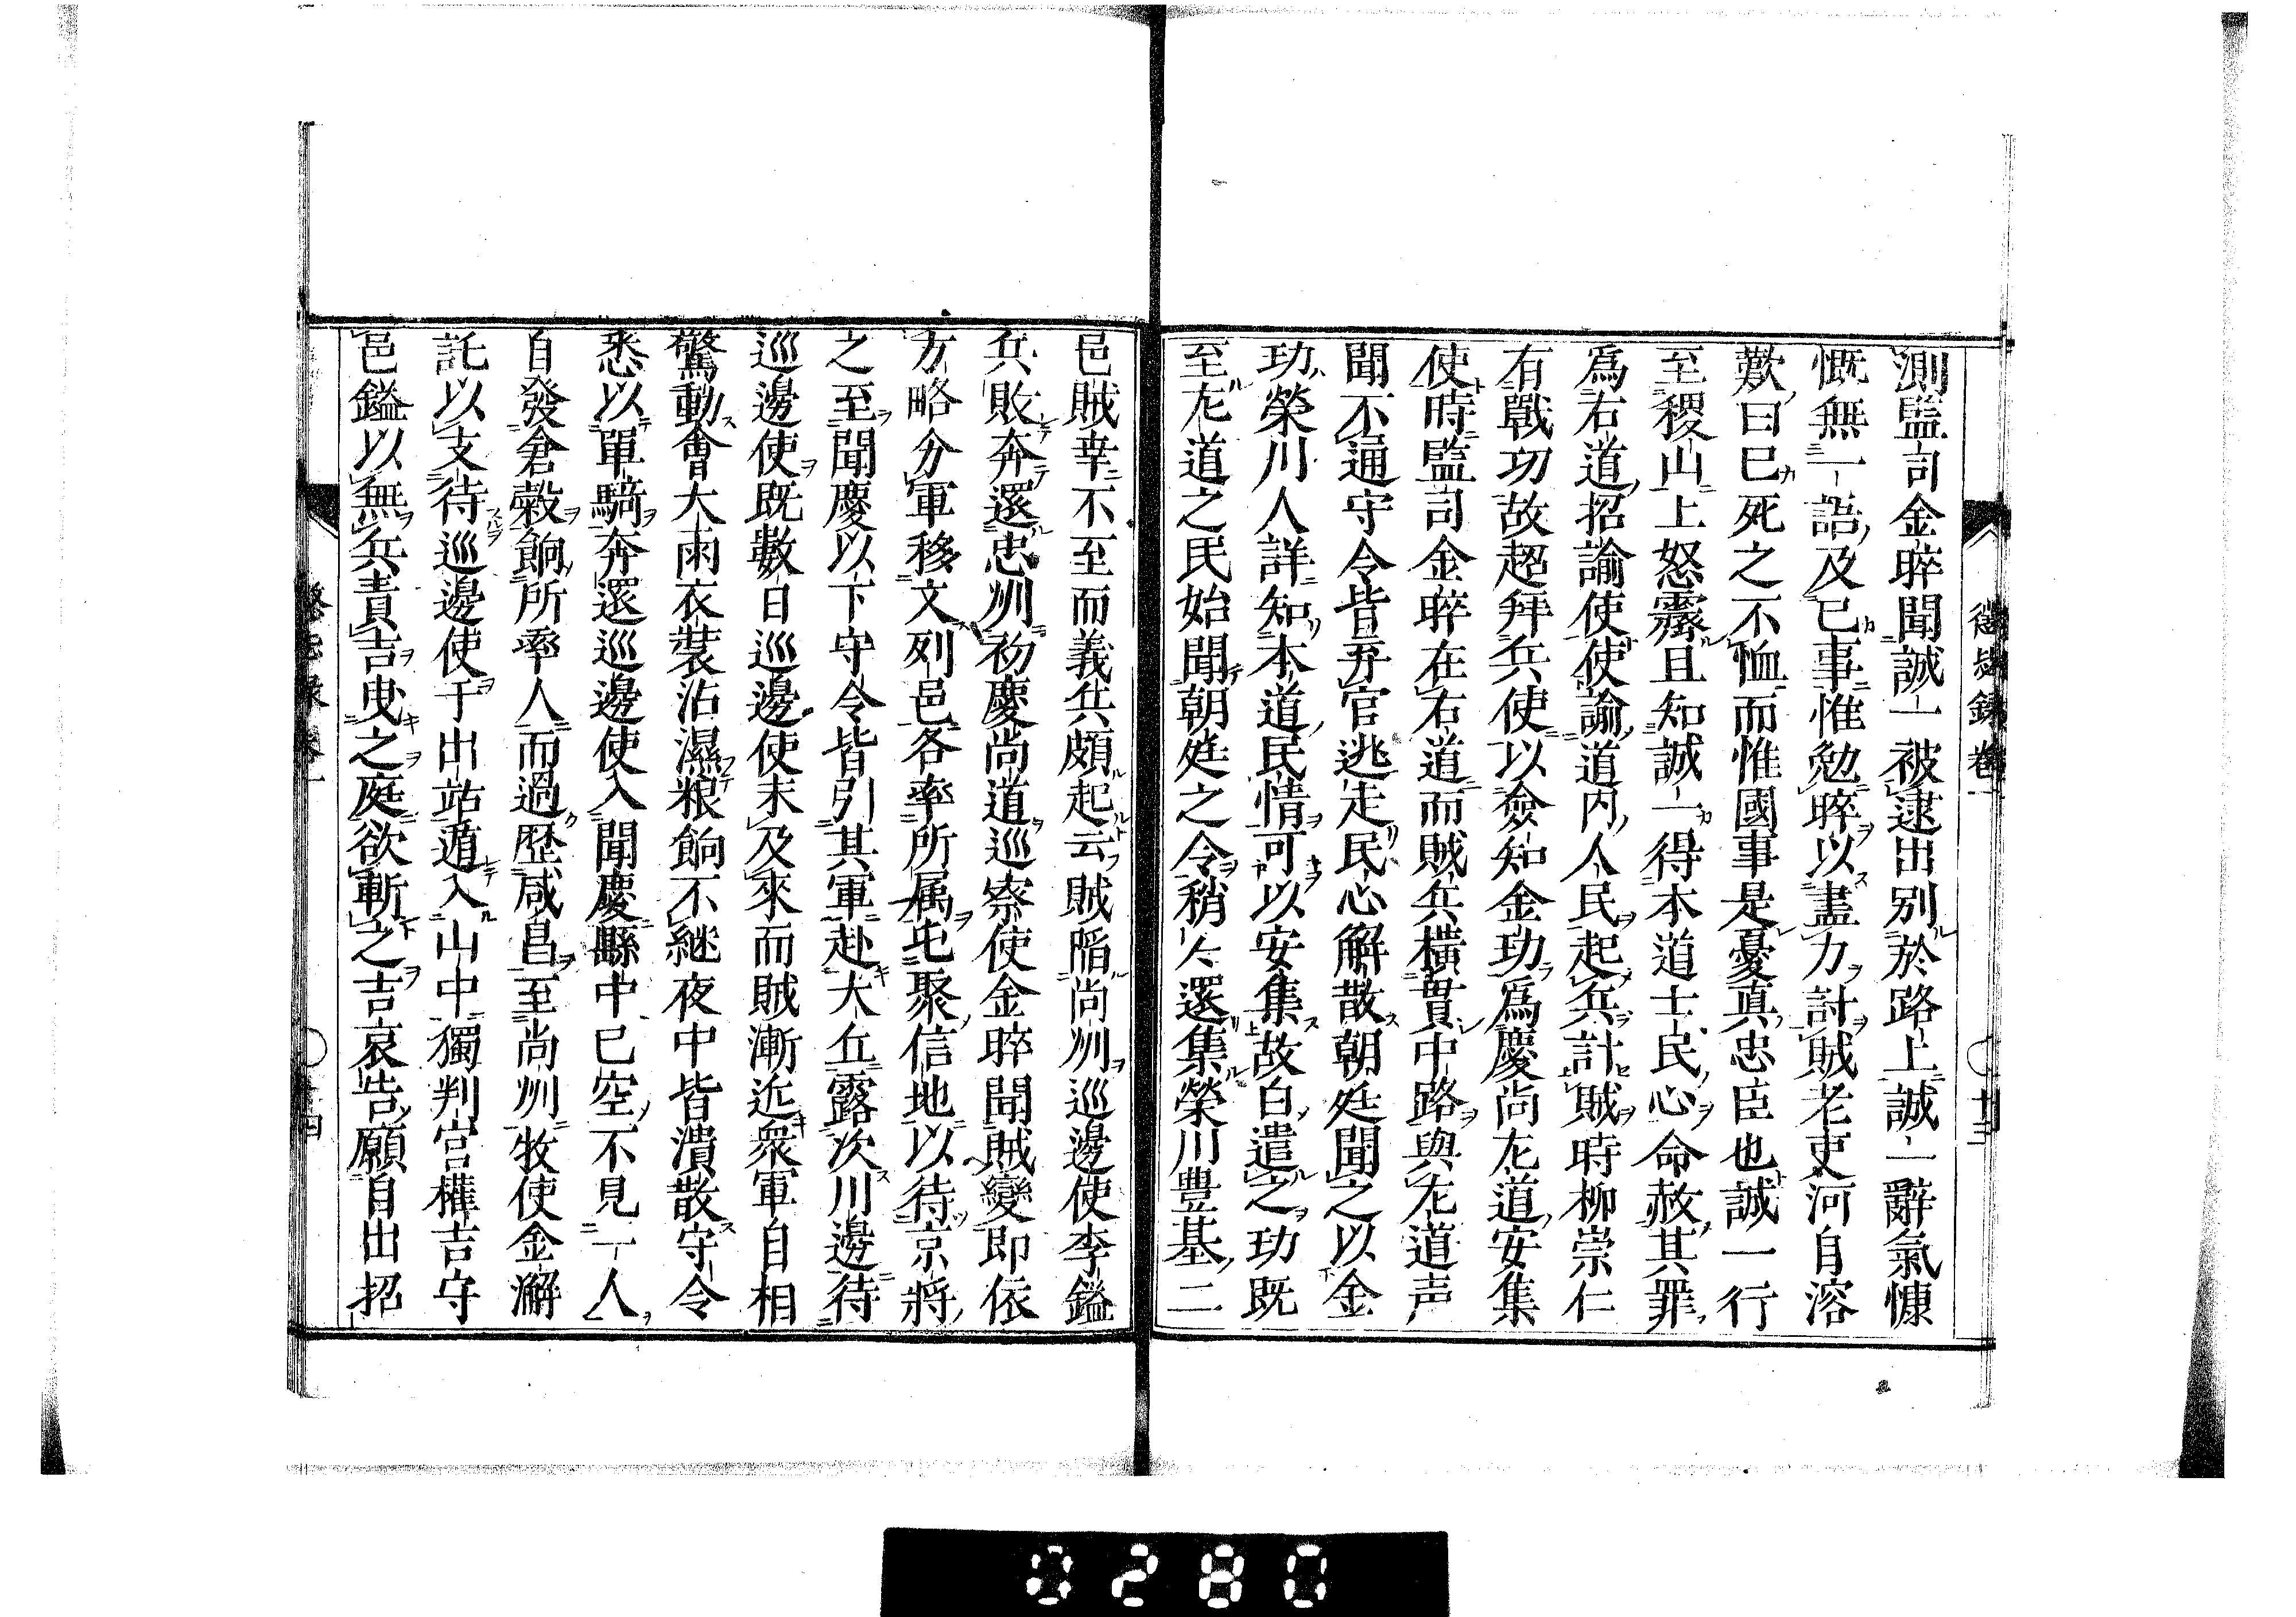 懲毖録卷一
十三
測監司金睟聞誠一被逮出別於路上誠一辭氣慷
慨無一語及己事惟勉睟以盡力計賊老吏河自溶
歎曰己死之不恤而惟國事是憂真忠臣也誠一行
至稷山上怒霽且知誠一得本道士民心命赦其罪
爲右道招諭使使諭道内人民起兵計賊時柳崇仁
有戰功故超拜兵使以僉知金功爲慶尚左道安集
使時監司金睟在右道而賊兵橫貫中路與左道声
聞不通守令皆弃官逃走民心解散朝廷聞之以金
功榮川人詳知本道民情可以安集故白遣之功既
至左道之民始聞朝廷之令稍々還集榮川豊基二
邑賊幸不至而義兵頗起云賊陷尚州巡邊使李鎰
兵敗奔還忠州初慶尚道巡察使金睟聞賊變即依
方略分軍移文列邑各率所属屯聚信地以待京將
之至聞慶以下守令皆引其軍赴大丘露次川邊待
巡邊使既數日巡邊使未及來而賊漸近衆軍自相
驚動會大雨衣裝沾濕粮餉不継夜中皆潰散守令
悉以單騎奔還巡邊使入聞慶縣中已空不見一人
自發倉穀餉所率人而過歴咸昌至尚州牧使金澥
託以支待巡邊使于出站遁入山中獨判官權吉守
邑鎰以無兵責吉曳之庭欲斬之吉哀告願自出招
0280